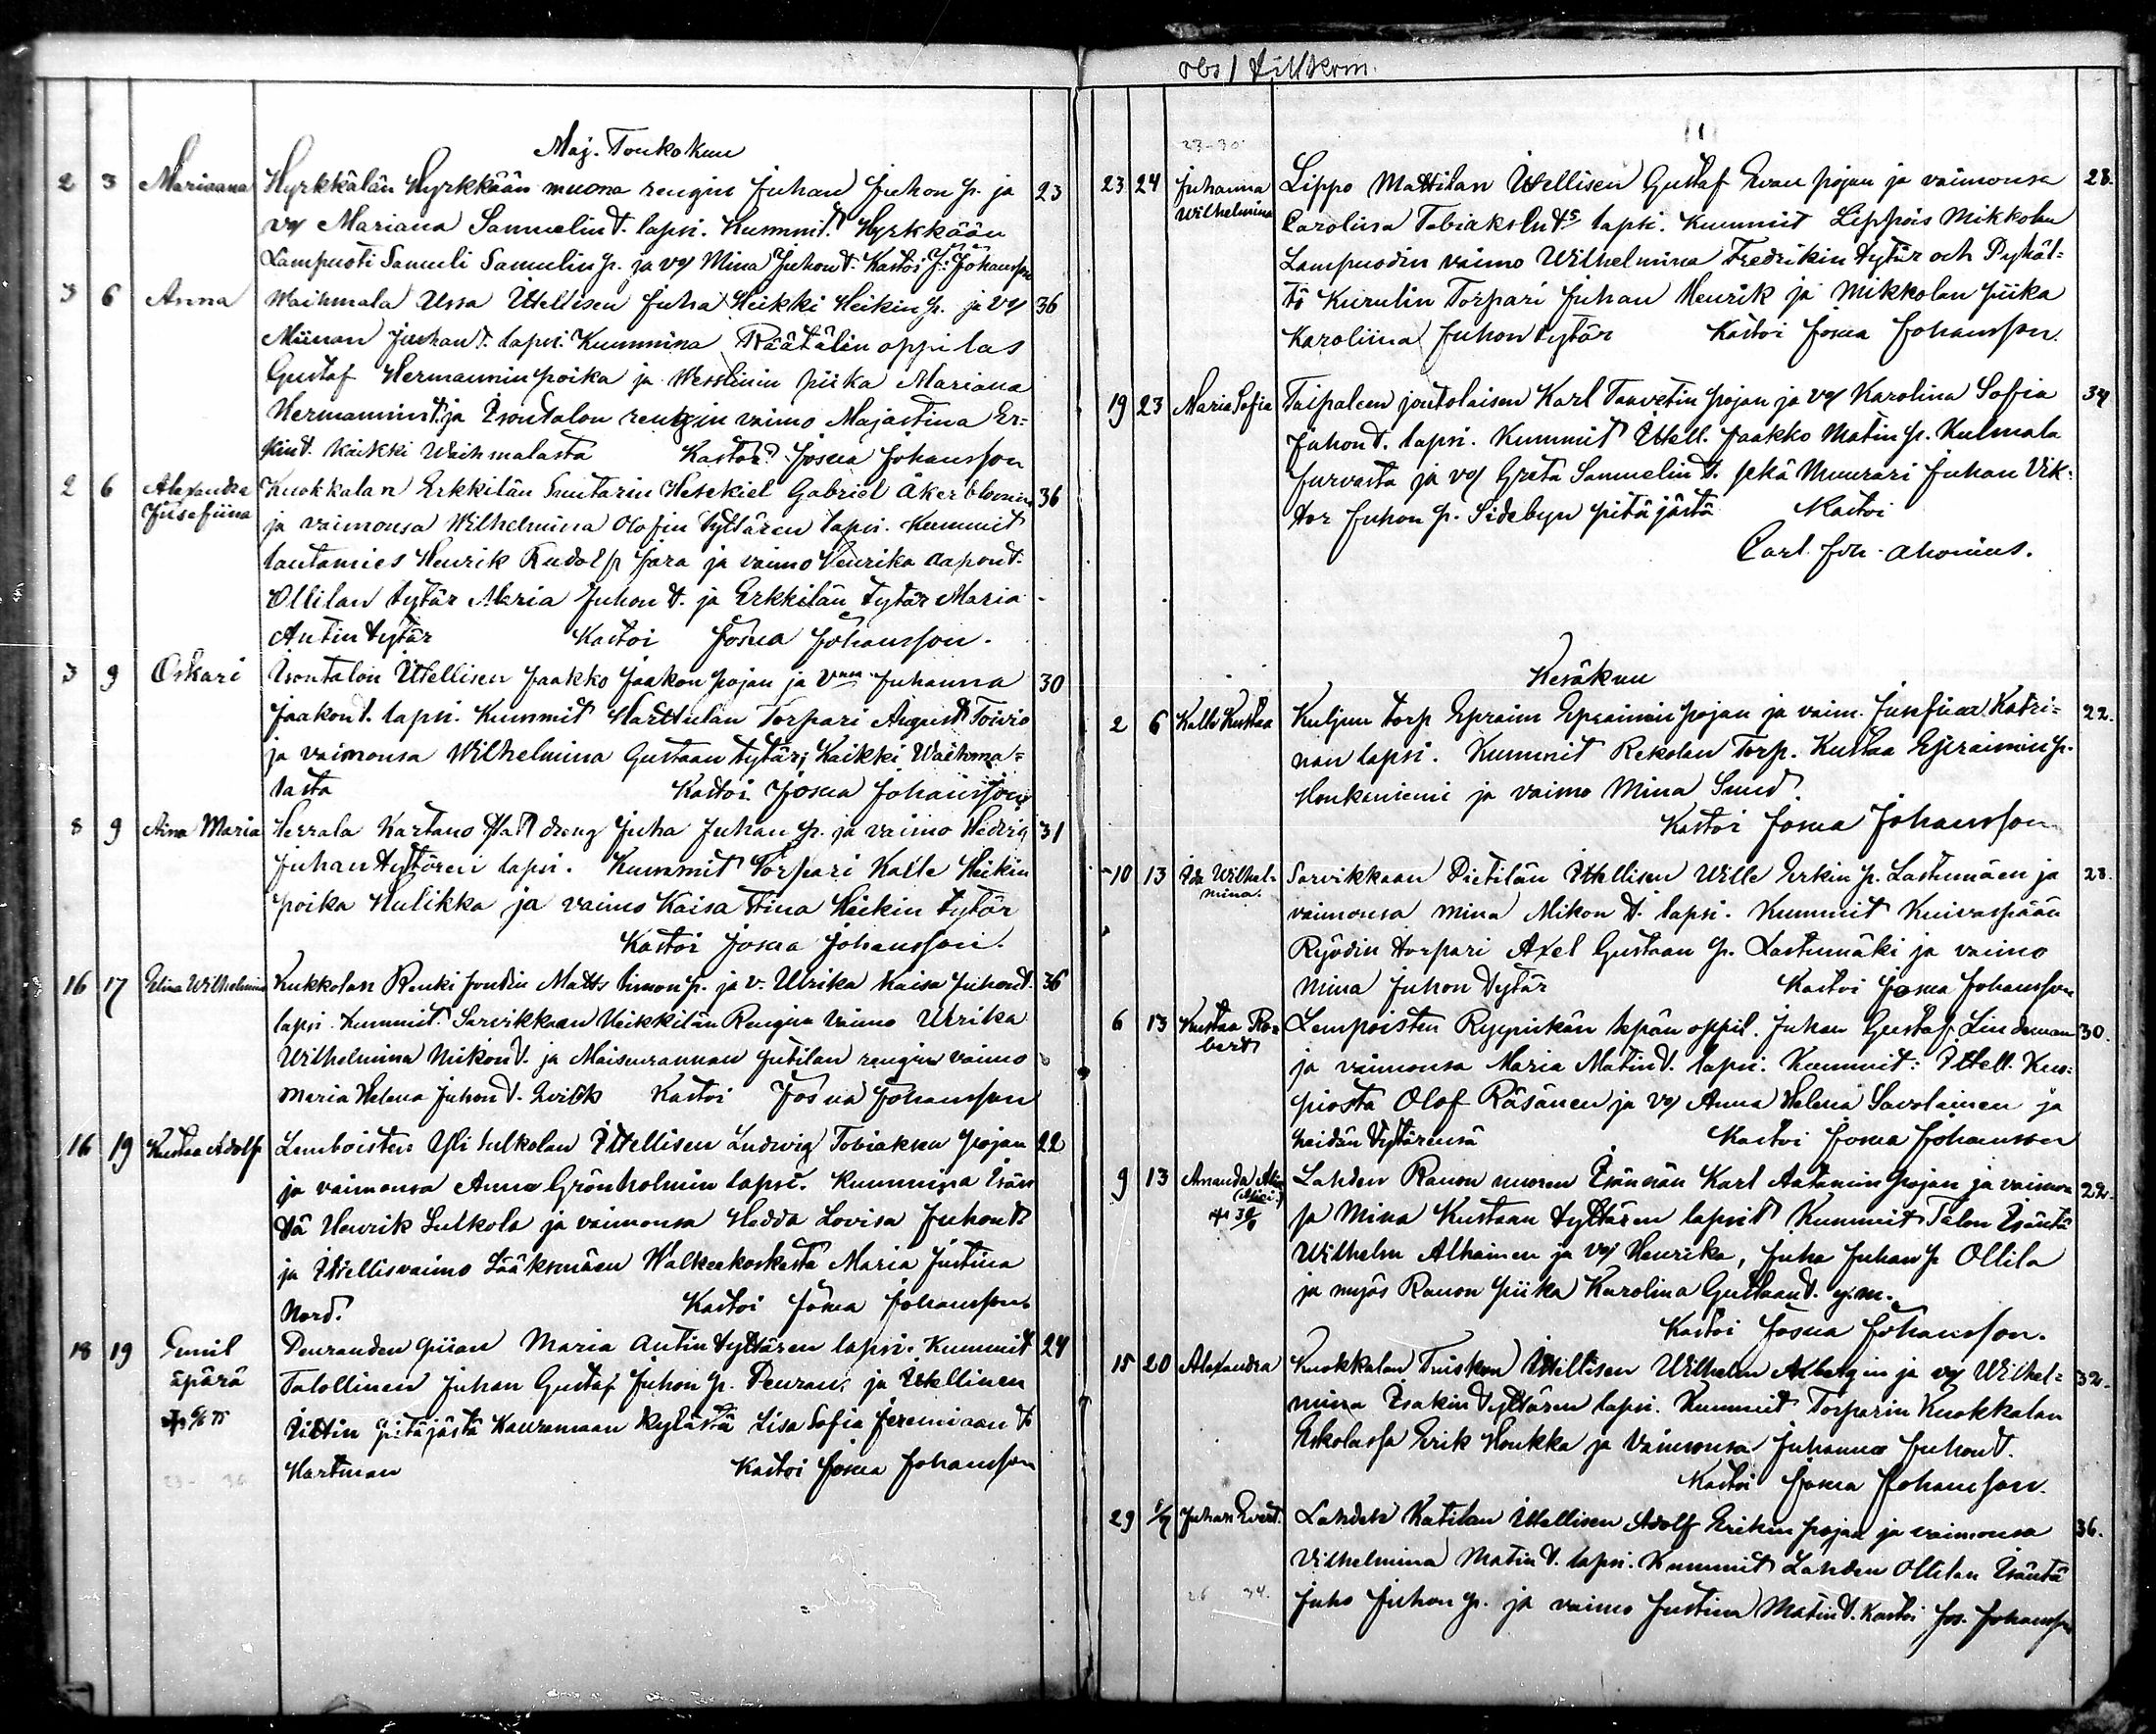 obs! tillkom.
Maj. Toukokuu
2 3 Mariaana Hyrkkälän Hyrkkään muona rengin Juhan Juhon p. ja 23
vo/ Mariana Samuelin t. lapsi. Kummit. Hyrkkään
Lampuoti Samuli Samulin p. ja vo/ Mina Juhon t. Kastoi J. Johansson
3 6 Anna Waihmala Ussa Itellisen Juha Heikki Heikin p. ja vo/ 36
Miinan Juhan t. lapsi. Kummina Räätälin oppilas
Gustaf Hermannin poika ja Wesslinin piika Mariana
Hermannin t. ja Isontalon rengin vaimo Majastina Er=
kin t. kaikki Waihmalasta Kastoi Josua Johansson
2 6 Alexandra Kuokkalan Erkkilän Suutarin Hesekiel Gabriel Åkerblomin 36
Jusefiina ja vaimonsa Wilhelmina Olofin tyttären lapsi. Kummit
lautamies Henrik Rudolf Jara ja vaimo Henrika Aapon t.
Ollilan tytär Maria Juhon t. ja Erkkilän tytär Maria
Antin tytär Kastoi Josua Johansson.
3 9 Oskari Isontalon Itellisen Jaakko Jaakon pojan ja Vmon Juhanna 30
Jaakon t. lapsi. Kummit Harttulan Torpari August Toivio
ja vaimonsa Wilhelmina Gustaan tytär; Kaikki Waihma=
lasta Kastoi Josua Johansson
8 9 Aina Maria Herrala Kartano Stall dreng Juha Juhan p. ja vaimo Hedvig 31
Juhan tyttären lapsi. Kummit Torpari Kalle Heikin
poika Hulikka ja vaimo Kaisa Stina Heikin tytär
Kastoi Josua Johansson.
16 17 Elina Wilhelmina Kukkolan Renki Matts Simon p. ja v. Ulrika Kaisa Juhon t. 36
lapsi. Kummit. Sarvikkaan Heikkilän Rengin Vaimo Ulrika
Wilhelmina Mikon t. ja Maisenrannan Jutilan rengin vaimo
Maria Helena Juhon t. Kastoi Josua Johansson
16 19 Kustaa Adolf Lemboisten Yli Sulkolan Itellisen Ludwig Tobiaksen pojan 22
ja vaimonsa Anna Grönholmin lapsi. Kummina Isän
tä Henrik Sulkola ja vaimonsa Hedda Lovisa Juhon t.
ja Itellisvaimo Sääksmäen Walkeakoskesta Maria Justina
Nord. Kastoi Josua Johansson
18 19 Emil Penranden piian Maria Antin tyttären lapsi. Kummit 24
äpärä Talollinen Juhan Gustaf Juhon p. ja Itellinen
Iittin pitäjästä Kauramaan kylästä Lisa Sofia Jeremiaan t.
Hartman Kastoi Josua Johansson
23-30
23 24 Juhanna Lippo Mattilan Itellisen Gustaf Evan pojan ja vaimonsa 28.
Wilhelmina Carolina Tobiaksen t:s lapsi. Kummit Lippois Mikkolan
Lampuodin vaimo Wilhelmina Fredrikin tytär och Pyhäl=
tö Kurulin Torpari Juhan Henrik ja Mikkolan piika
Karoliina Juhon tytär Kastoi Josua Johansson.
19 23 Maria Sofia Taipaleen joutolaisen Karl Taavetin pojan ja vo/ Karolina Sofia 34
Juhon t. lapsi. Kummit Itell. Jaakko Matin p. Kulmala
Jurvasta ja vo/ Greta Samuelin t. sekä Muurari Juhan Vik=
tor Juhon p. Sidebyn pitäjästä Kastoi
Carl Joh. Ahonius.
Kesäkuu
2 6 Kalle Kustaa Kuljun torp Epraim Epraimin pojan ja vaim. Jusefiian Katri= 22.
nan lapsi. Kummit Rekolan Torp. Kustaa Epraimin p.
Honkaniemi ja vaimo Mina Sund.
Kastoi Josua Johansson
10 13 Ida Wilhel= Sarvikkaan Pietilän Itellisen Wille Erkin p. Lastumäen ja 28.
mina. vaimonsa Mina Mikon t. lapsi. Kummit Kuivaspään
Ryödin torpari Axel Gustaan p. Lastumäki ja vaimo
Mina Juhon tytär Kastoi Josua Johansson
6 13 Kustaa Ro= Lempoisten Ryypiskän sepän oppil. Juhan Gustaf Lindeman 30.
bert ja vaimonsa Maria Matin t. lapsi. Kummit: Itell. Kuo=
piosta Olof Räsänen ja vo/ Anna Helena Savolainen ja
heidän tyttärensä Kastoi Josua Johansson
9 13 Amanda Lahden Ranon nuoren Isännän Karl Aatamin pojan ja vaimon 22.
sa Mina Kustaan tyttären lapsi Kummit Talon Isäntä
Wilhelm Alhainen ja vo/ Henrika, Juha Juhan p. Ollila
ja myös Ranon piika Karolina Gustaan t. y.m.
Kastoi Josua Johansson.
15 20 Alexandra Kuokkalan Tuiskun Itellisen Wilhelm Albergin ja vo/ Wilhel= 32.
mina Isakin tyttären lapsi. Kummit Torparin Kuokkalan
Eskolassa Erik Honkka ja Vaimonsa Juhanna Juhon t.
Kastoi Josua Johansson.
29 1/7 Juhan Evert. Lahden Katilan Itellisen Adolf Erikin pojan ja vaimonsa 36.
Vilhelmina Matin t. lapsi. Kummit Lahden Ollilan Isäntä
Juho Juhon p. ja vaimo Justina Matin t. Kastoi Jos. Johansson
26 34.